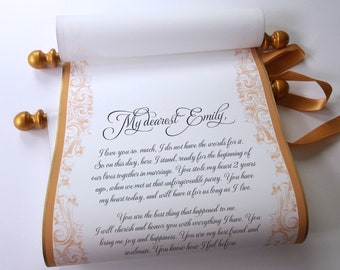 My dearest Emily,
I love you so much, I do not have the words for it.
So on this day, here I stand, ready for the beginning of
our lives together in marriage. You stole my heart 2 years
ago, when we met at that unforgivable party. You have
my heart today, and will have it for us long as I live.
You are the best thing that happened to me.
I will cherish and honor you with everything I have. You
bring me joy and happiness. You are my best friend and
soulmate. You know how I felt before